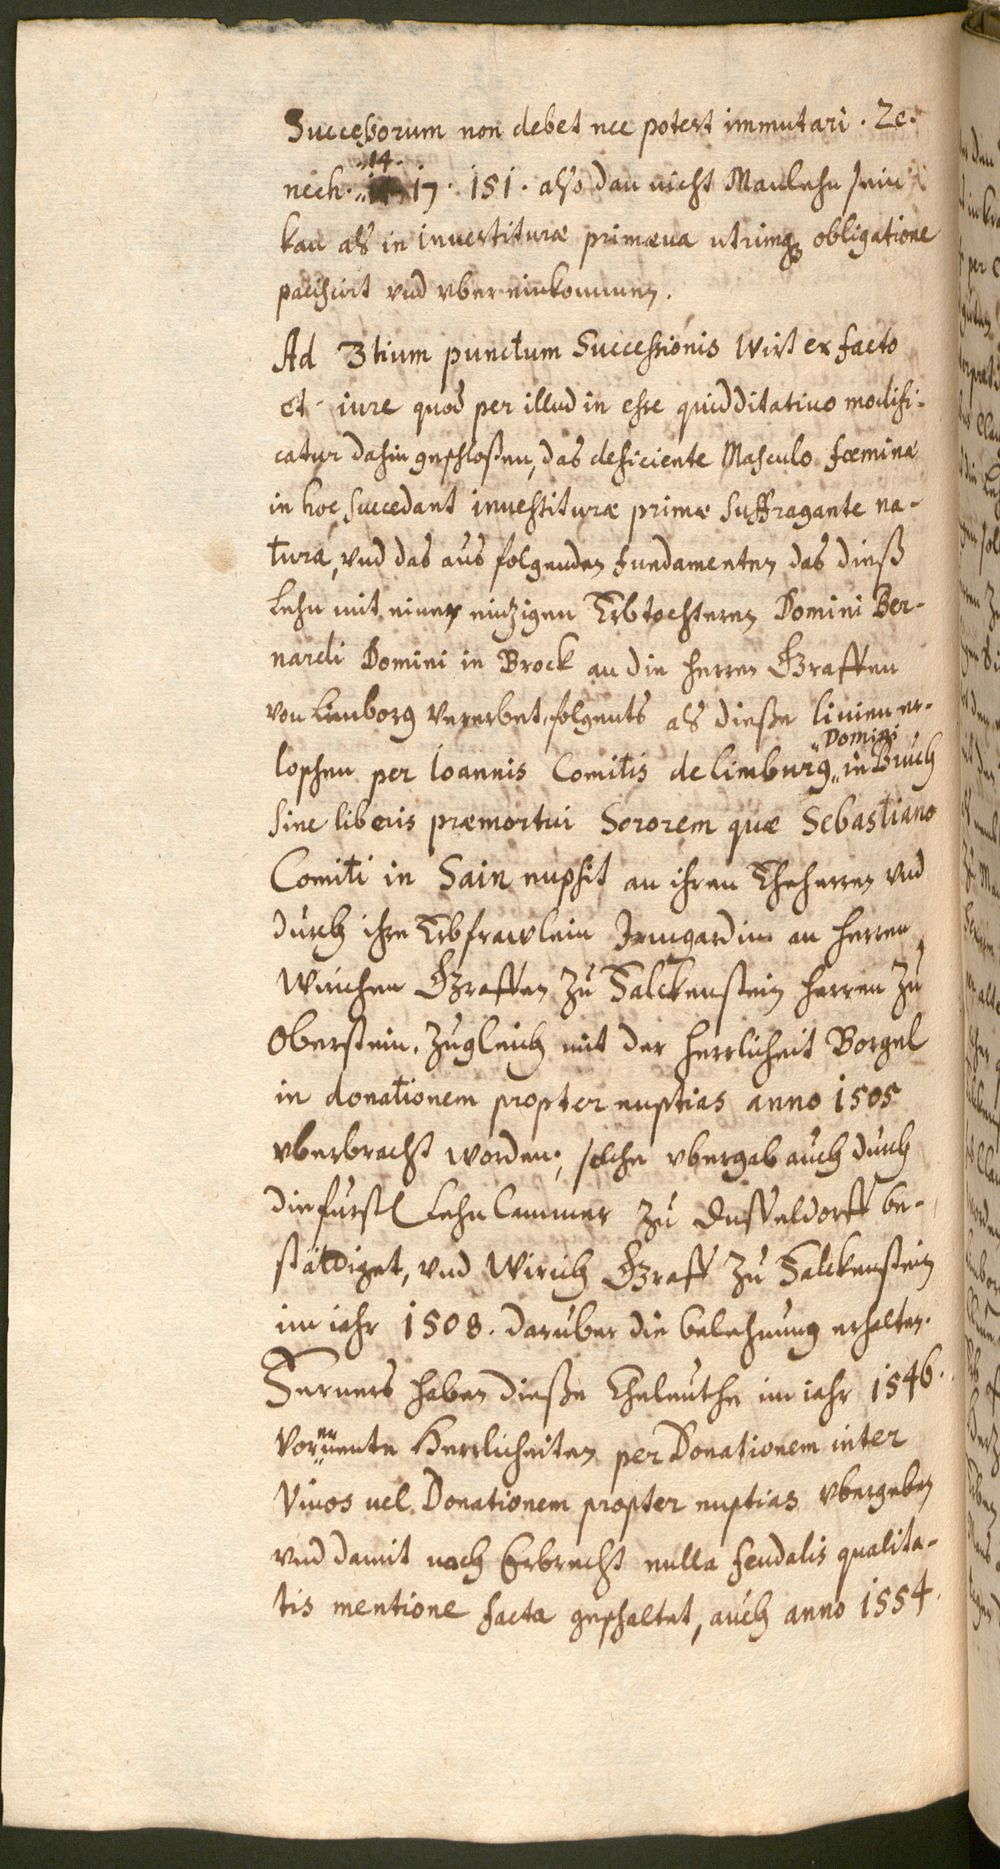 Successorum non debet nec potest immutari. Ze.
nech. 14. 17. 151. also dan nicht Manlehn sein
kan als in investituræ primæua utrimq obligatione
paciscirt vnd vbereinkommen.
Ad 3tium punctum Successionis Wirt ex facto
et iure quod per illud in esse quidditatiuo modifi-
catur dahin geschloßen, das deficiente Masculo foeminæ
in hoc succedant investituræ primæ suffragante na-
tura, vnd das aus folgenden fundamenten das dieß
Lehn mit einer eintzigen Erbtochteren Domini Ber-
nardi Domini in Brock an die Herren Graffen
von Limborg Vererbet, folgents als dieße linien er-
loschen per Ioannis Comitis de limburg Domini in Bruch
sine liberis præmortui Sororem quæ Sebastiano
Comiti in Sain nupsit an ihren Eheherren vnd
durch ihre Erbfrawlein Irmgardim an Herren
Wirichen Graffen Zu Falckenstein Herren Zu
Oberstein, Zugleich mit der Herrlicheit Borgel
in donationem propter nuptias anno 1505
vberbracht worden, solche vbergab auch durch
die fürstl Lehn Cammer Zu Dusseldorff be-
stättiget, vnd Wirich Graff Zu Falckenstein
im iahr 1508. daruber die belehnung erhalten.
Ferners haben dieße Eheleuthe im iahr 1546.
Vorernente Herrlicheiten per Donationem inter
Viuos uel Donationem propter nuptias vbergeben
vnd damit nach Erbrecht nulla feudalis qualita-
tis mentione facta geschaltet, auch anno 1554.